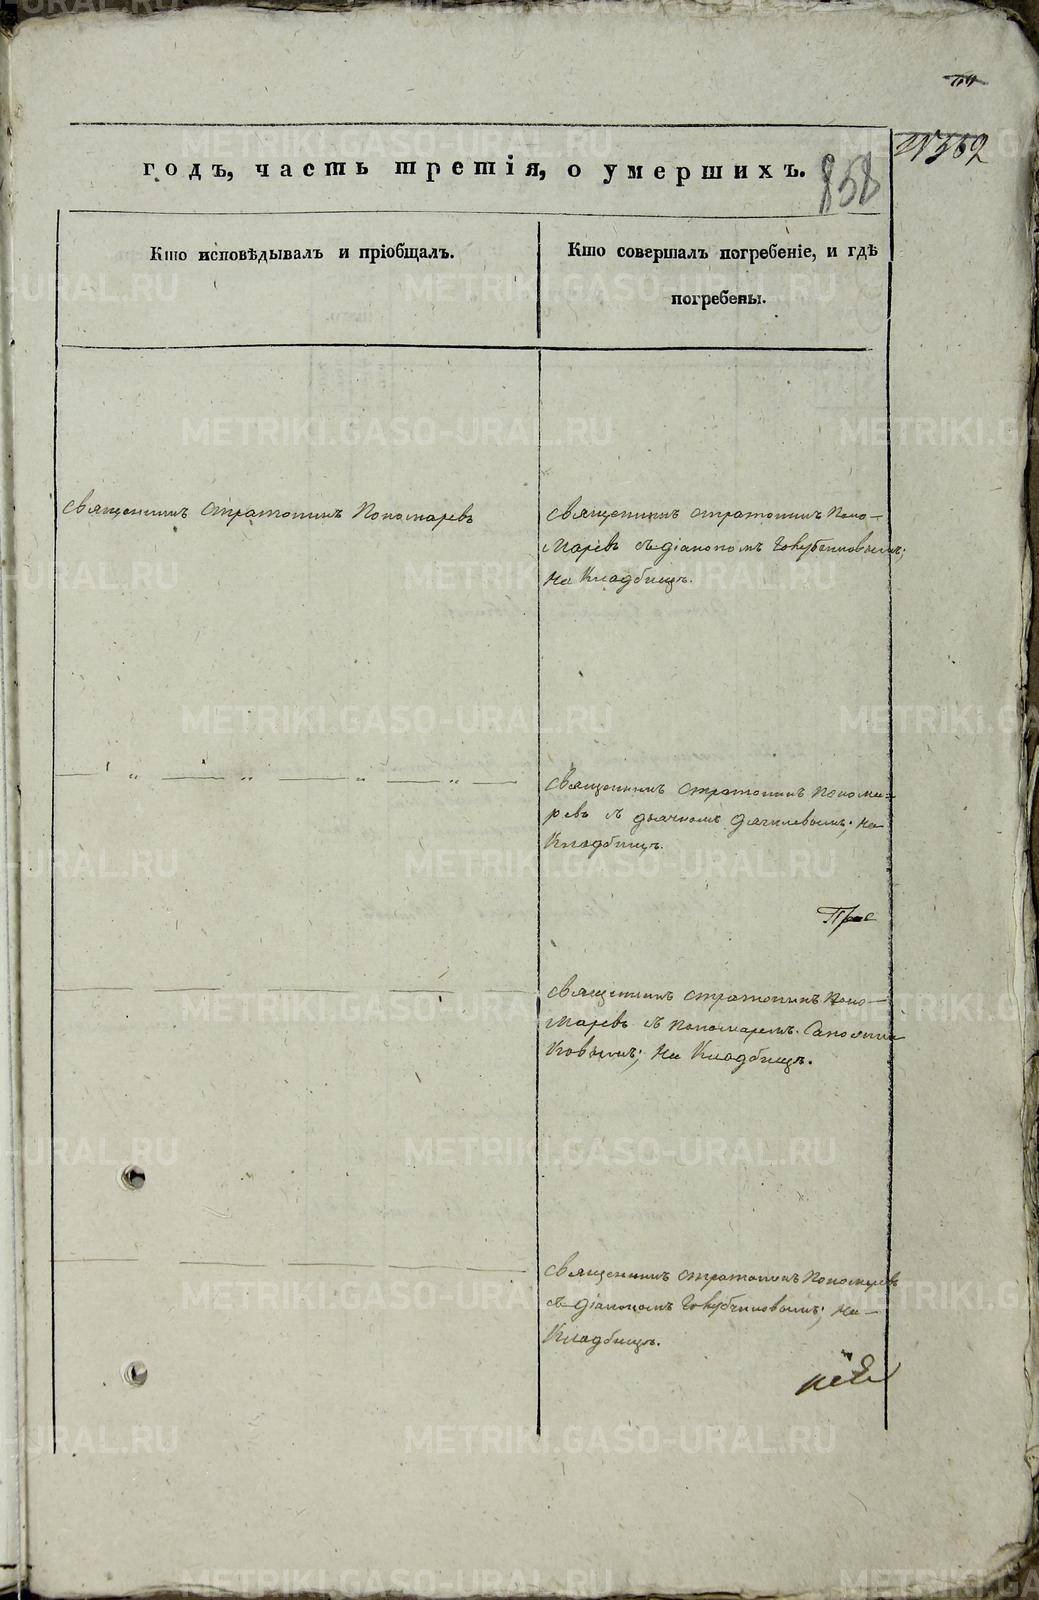 годъ, часть третія, о умершихъ.
858
Кто исповѣдывалъ и пріобщалъ.
Кто совершалъ погребеніе, и гдѣ
погребены.
Священникъ Стратоникъ Пономаревъ
Священникъ Стратоникъ Поно-
маревъ съ діакономъ Голубчиковымъ;
На Кладбищѣ.
Священникъ Стратоникъ Понома-
ревъ съ дьячкомъ Дягилевымъ; на
Кладбищѣ.
Священникъ Стратоникъ Поно-
маревъ съ пономаремъ Сапожни
ковымъ; на Кладбищѣ.
Священникъ Стратоникъ Пономаревъ
съ діакономъ Голубчиковымъ; на
Кладбищѣ.
METRIKI.GASO-URAL.RU